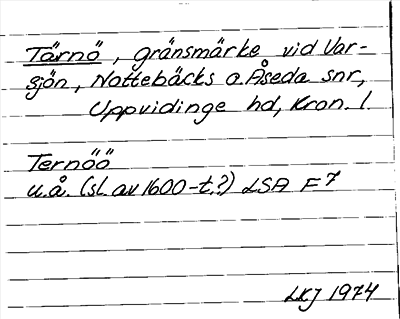 Tärnö, gränsmärke vid Var-
sjön, Nottebäcks o. Åseda snr,
Uppvidinge hd, Kron. l.
Ternöö
u.å. (sl. av 1600-t.?) LSA F7
LKJ 1974